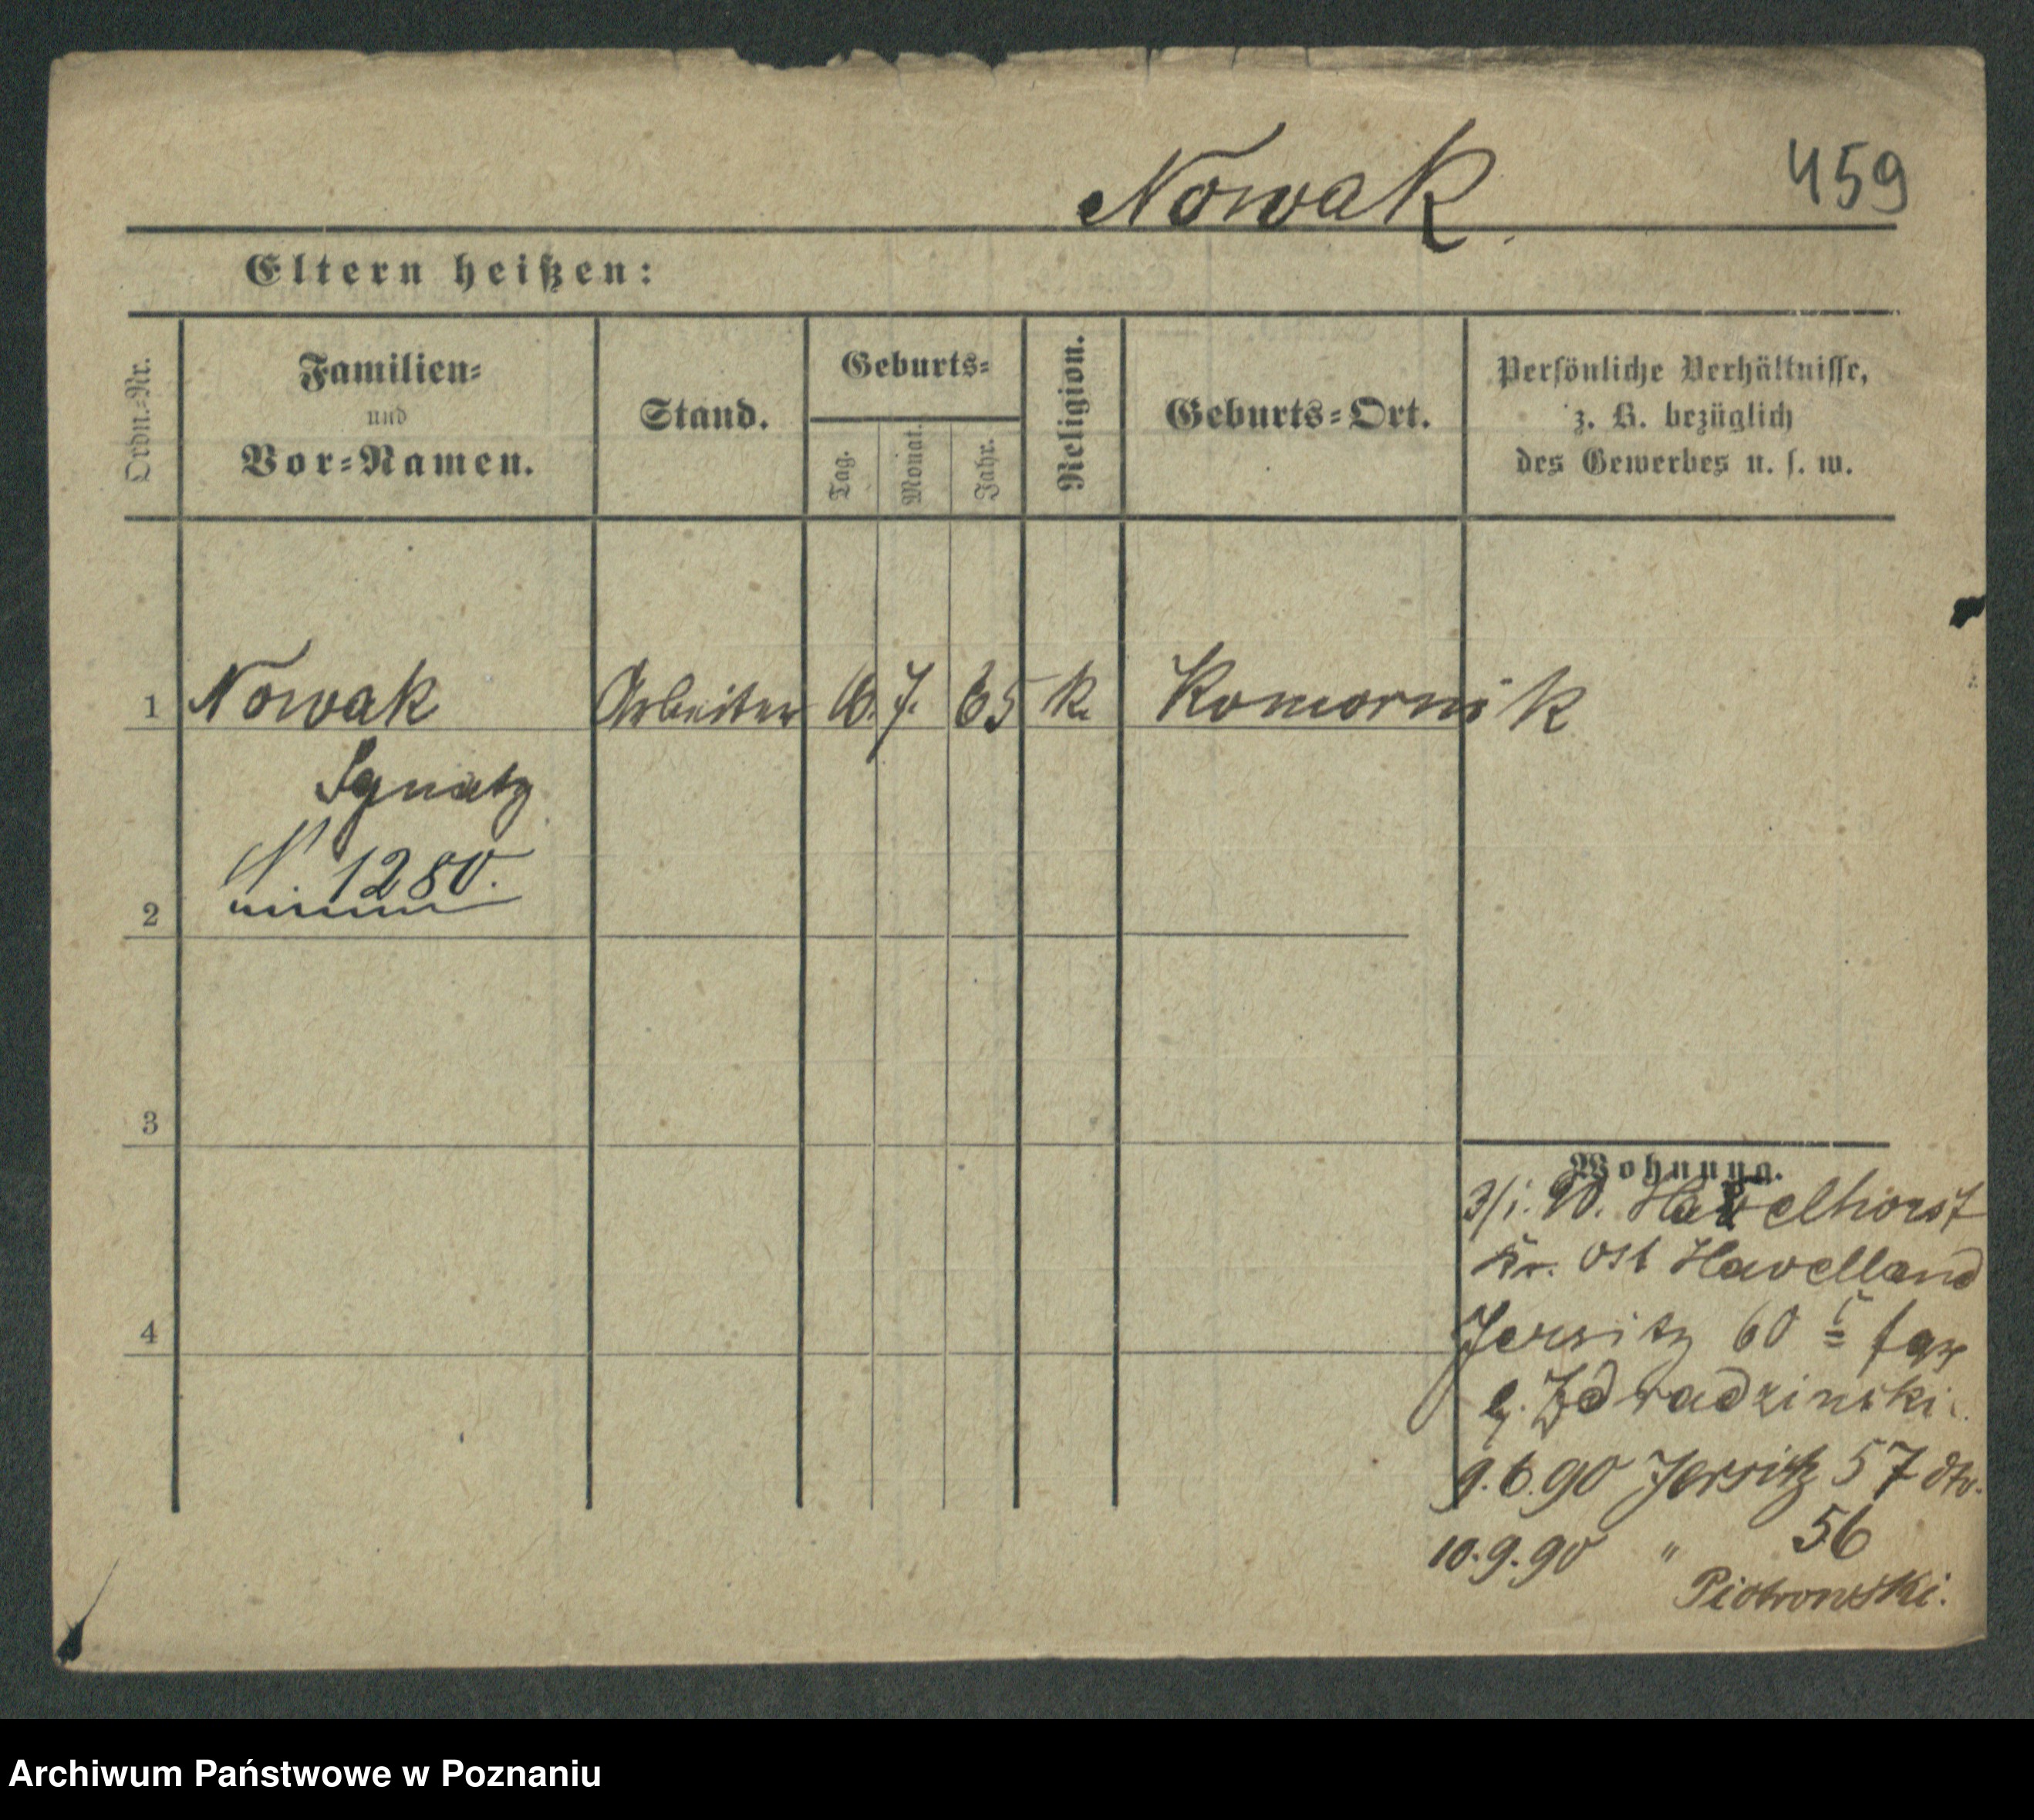 Nowak
459
Eltern heißen:
Ordn.-Nr.
Familien-
und
Vor-Namen.
Stand.
Geburts-
Tag.
Monat.
Jahr.
Religion.
Geburts-Ort.
Persönliche Verhältnisse,
z. B. bezüglich
des Gewerbes u. s. w.
1 Nowak Arbeiter 6. 7. 65 k. Komornik
Ignatz
N. 1280.
2
3
4
Wohnung.
3/1. 90. Havelhorst
Kr. Ost Havelland
Jersitz 60
b. Zdradzinski.
9.6.90 Jersitz 57
10.9.90 " 56
Piotrowski.
Archiwum Państwowe w Poznaniu